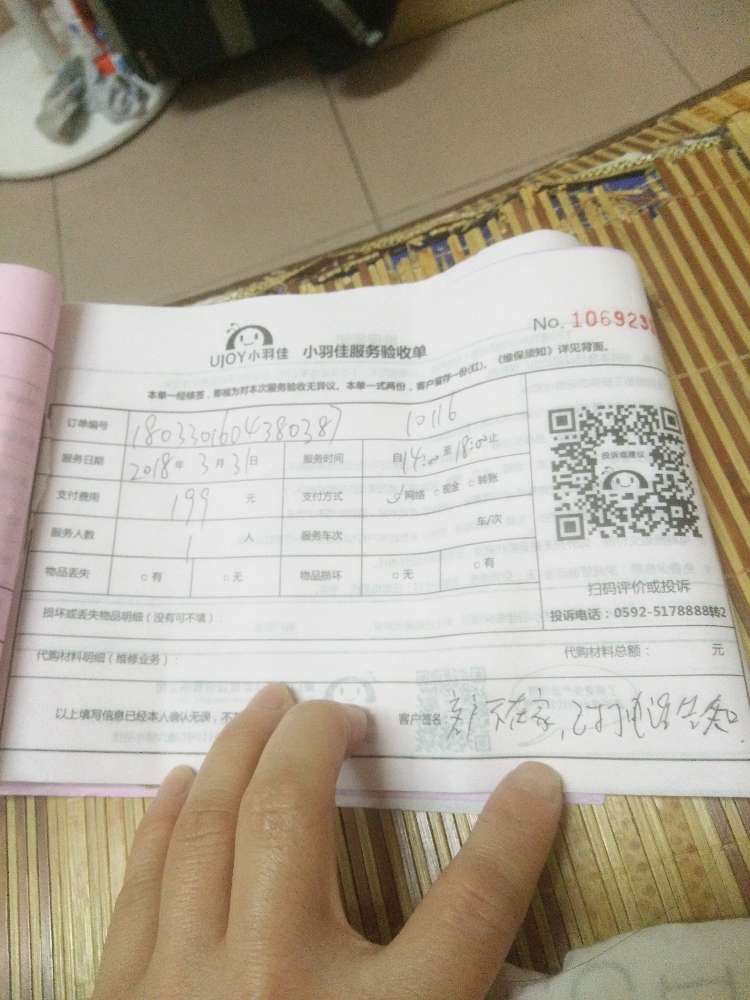 No. 106923
UJOY小羽佳 小羽佳服务验收单
本单一经核签，即视为对本次服务验收无异议。本单一式两份，客户留存一份(红)。《维保须知》详见背面。
订单编号 1803301604380387 10116
服务日期 2018年3月31日 服务时间 自14:00至18:00止
支付费用 199 元 支付方式 ✓网络 □现金 □转账
服务人数 1 人 服务车次 车/次
物品丢失 □有 □无 物品损坏 □无 □有
投诉或建议
扫码评价或投诉
投诉电话：0592-5178888转2
损坏或丢失物品明细（没有可不填）：
代购材料明细（维修业务）： 代购材料总额： 元
以上填写信息已经本人确认无误，不 客户签名：客户不在家，已打电话告知.